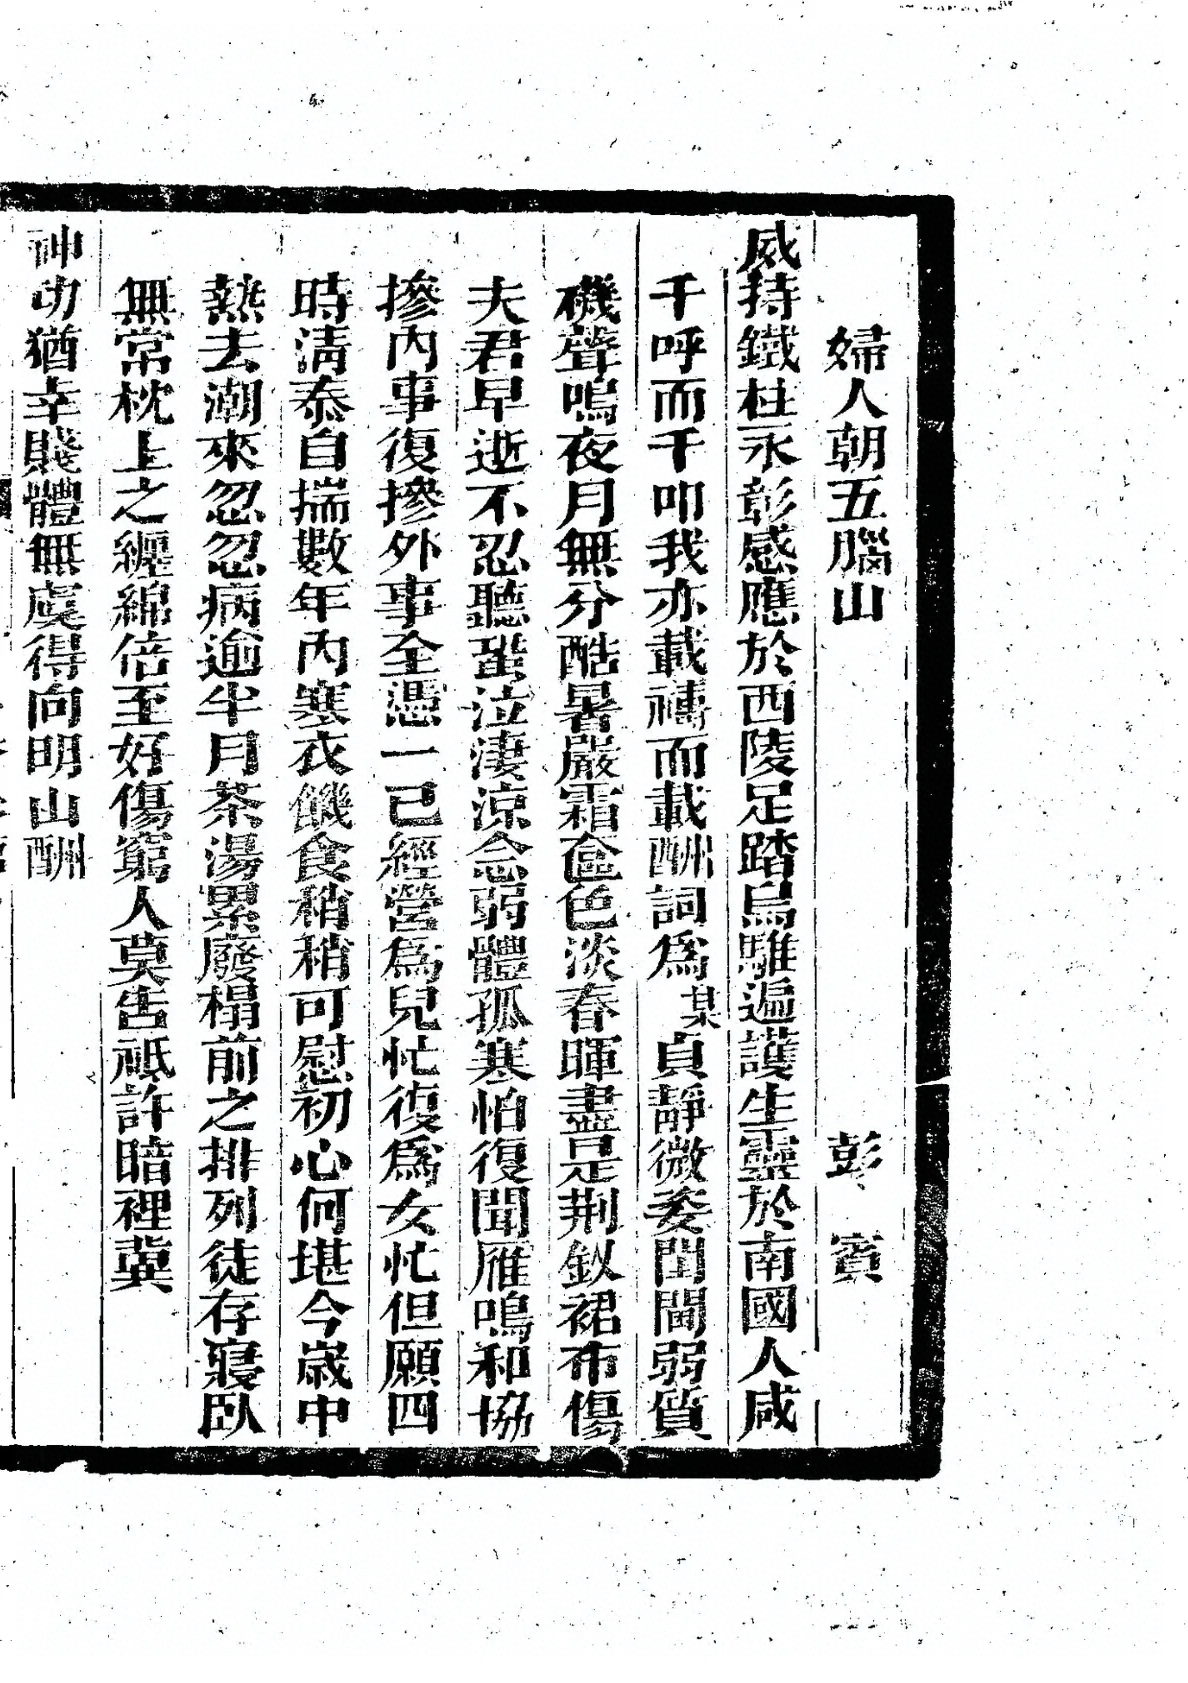 婦人朝五腦山 彭賓
威持鐵柱永彰感應於西陵足踏烏騅遍護生靈於南國人咸
千呼而千叩我亦載禱而載酬詞爲某貞靜微姿閨閫弱質
磯聲鳴夜月無分酷暑嚴霜奩色淡春暉盡是荆釵裙布傷
夫君早逝不忍聽蛩泣淒涼念弱體孤寒怕復聞雁鳴和協
摻內事復摻外事全憑一己經營爲兒忙復爲女忙但願四
時淸泰自揣數年內寒衣饑食稍稍可慰初心何堪今歲中
熱去潮來忽忽病逾半月茶湯累廢榻前之排列徒存寢臥
無常枕上之纏綿倍至好傷窮人莫告祇許暗裡冀
神功猶幸賤體無虞得向明山酬